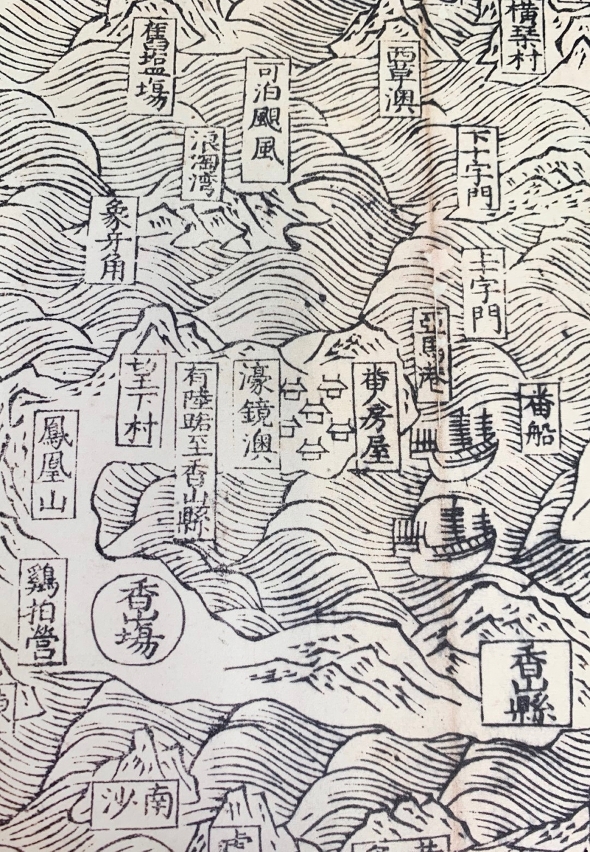 橫琴村
舊塩塲
可泊颶風
浪淘湾
下十字門
象牙角
上字門
亞馬港
望下村
有陸路至香山縣
濠鏡澳
番房屋
番船
鳳凰山
鷄拍營
香山塲
香山縣
南沙